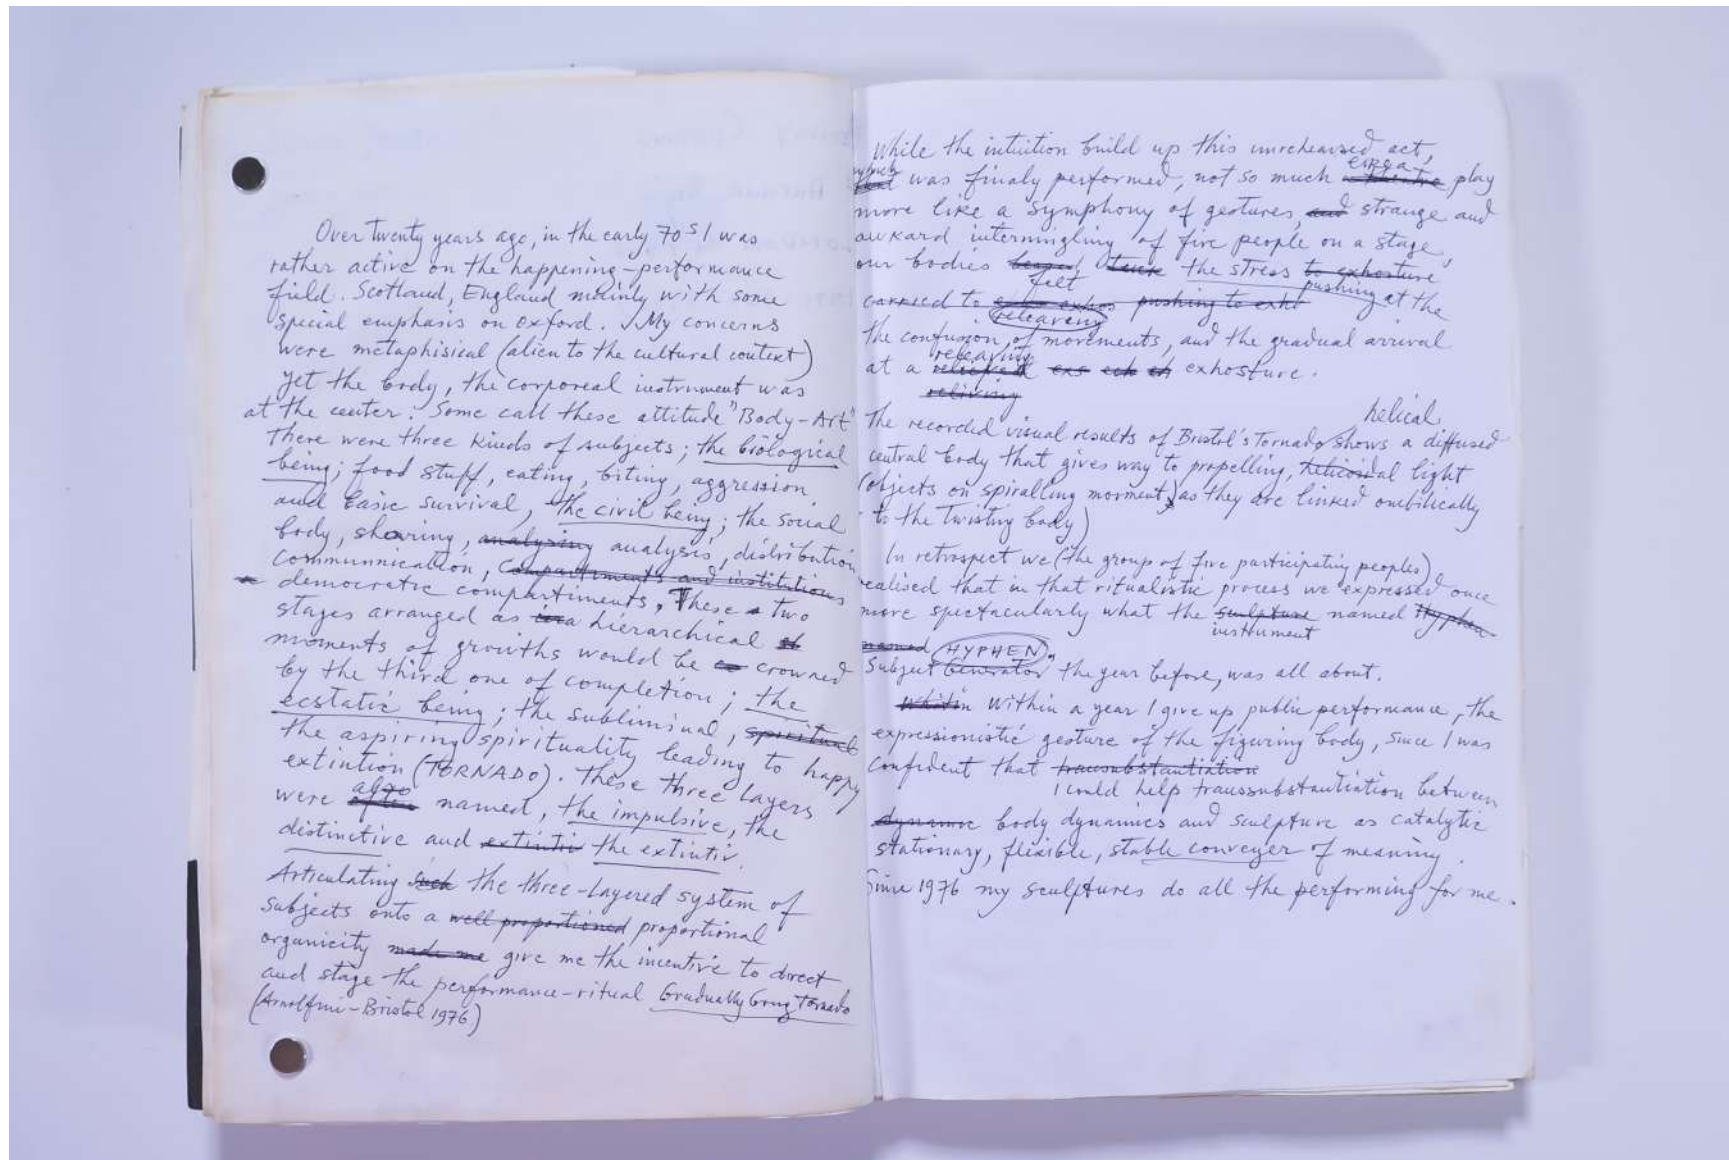 Over twenty years ago, in the early 70s I was
rather active on the happening-performance
field. Scotland, England mainly with some
special emphasis on Oxford. My concerns
were metaphisical (alien to the cultural context)
yet the body, the corporeal instrument was
at the center. Some call these attitude "Body-Art"
there were three kinds of subjects; the biological
being; food stuff, eating, biting, aggression
and basic survival, the civil being; the social
body, sharing, analysing analyses, distribution
communication, compartiments and institutions
democratic compartiments. These two
stages arranged as a hierarchical
moments of growths would be crowned
by the third one of completion; the
ecstatic being; the subliminal, spiritual
the aspiring spirituality leading to happy
extintion (TORNADO). These three layers
also
were often named, the impulsive, the
distinctive and extintiv the extintiv.
Articulating such the three-layered system of
subjects onto a well proportioned proportional
organicity made me give me the incentive to direct
and stage the performance-ritual Gradually Going Tornado
(Arnolfini-Bristol 1976)
While the intuition build up this unrehearsed act,
which
that was finaly performed, not so much a theatre play
more like a symphony of gestures, and strange and
awkard intermingling of five people on a stage,
our bodies the stress to exhosture
felt pushing
carried to pushing to exho at the
releaving
the confusion of movements, and the gradual arrival
releaving
at a relieved exs exh exhosture.
reliving
helical
The recorded visual results of Bristol's Tornado shows a diffused
central body that gives way to propelling, helicoidal light
(objects on spiralling morment, as they are linked ombilically
to the twisting body)
In retrospect we (the group of five participating peoples)
realised that in that ritualistic process we expressed once
more spectacularly what the sculpture named Hyphen
instrument
named HYPHEN
Subject Generator the year before, was all about.
within a year I give up public performance, the
expressionistic gesture of the figuring body, since I was
confident that transubstantiation
I could help transsubstantiation between
dynamic body dynamics and sculpture as catalytic
stationary, flexible, stable conveyer of meaning.
Since 1976 my sculptures do all the performing for me.